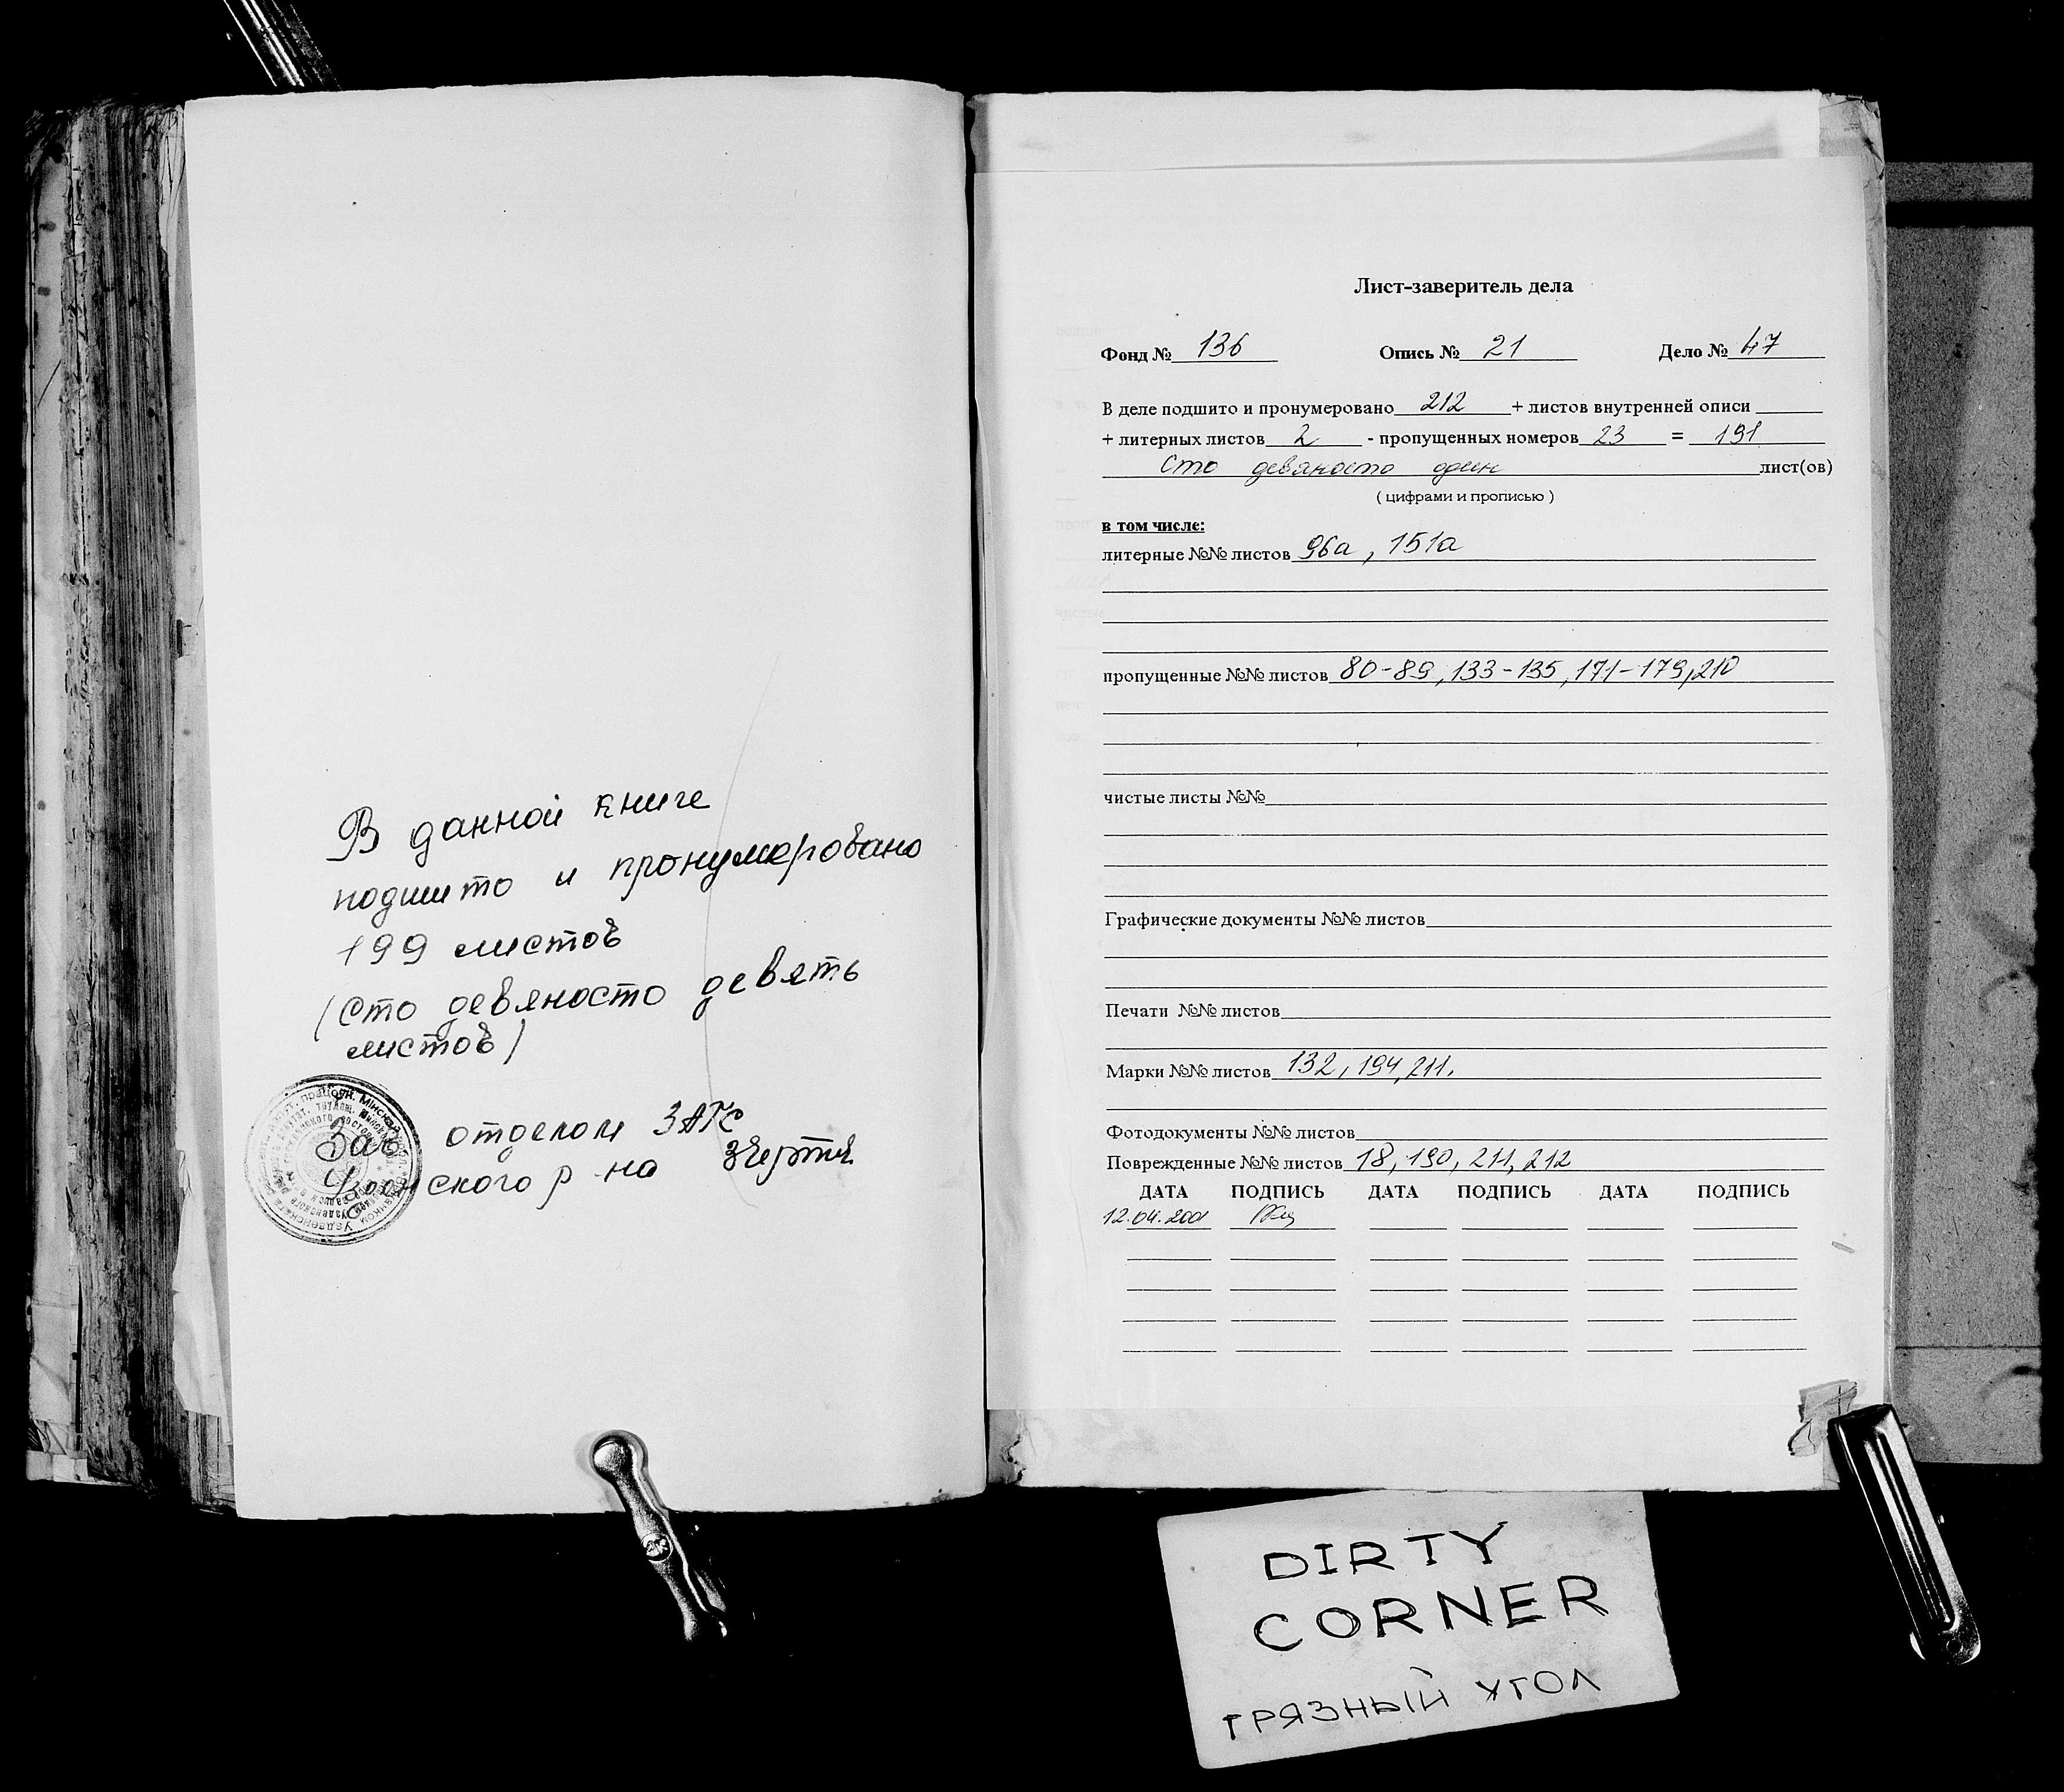 В данной книге
подшито и пронумеровано
199 листов
(Сто девяносто девять
листов)
Зав отделом ЗАГС
Узденского р-на
Лист-заверитель дела
Фонд № 136 Опись № 21 Дело № 47
В деле подшито и пронумеровано 212 + листов внутренней описи
+ литерных листов 2 - пропущенных номеров 23 = 191
Сто девяносто один лист(ов)
( цифрами и прописью )
в том числе:
литерные №№ листов 96а, 151а
пропущенные №№ листов 80-89, 133-135, 171-179, 210
чистые листы №№
Графические документы №№ листов
Печати №№ листов
Марки №№ листов 132, 194, 211.
Фотодокументы №№ листов
Поврежденные №№ листов 18, 190, 211, 212
ДАТА ПОДПИСЬ ДАТА ПОДПИСЬ ДАТА ПОДПИСЬ
12.04.2001
DIRTY
CORNER
ГРЯЗНЫЙ УГОЛ